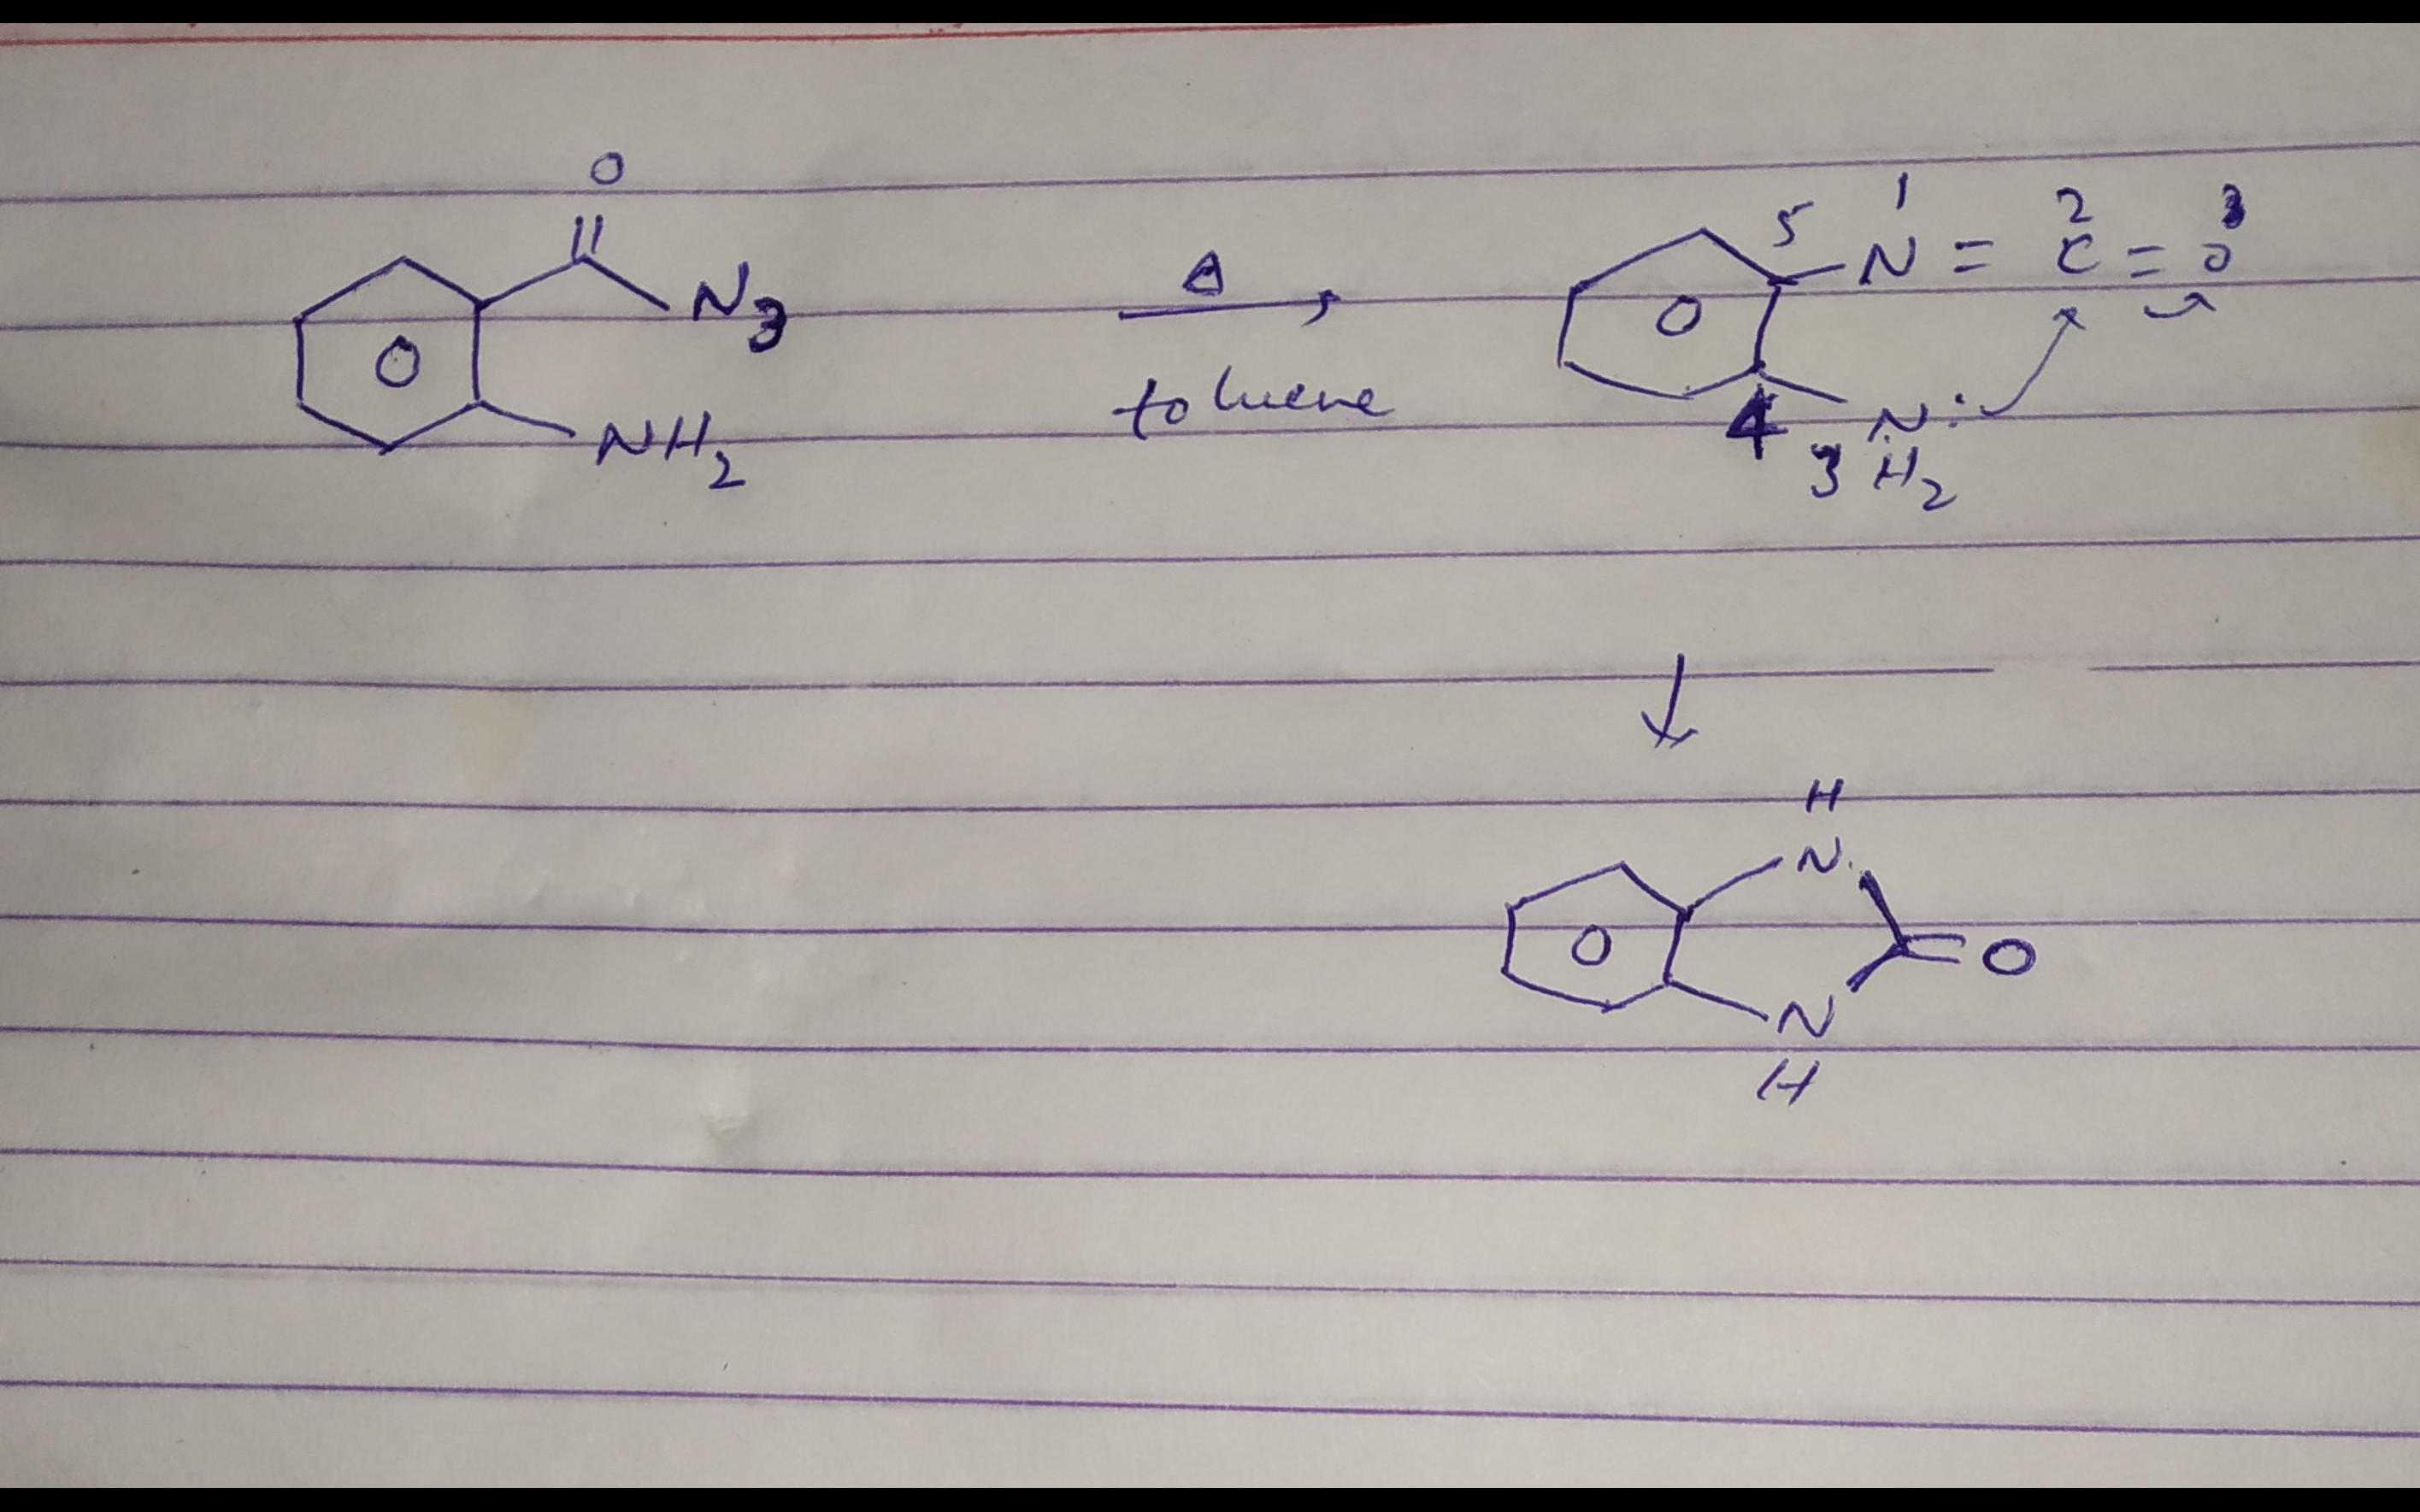 O
N3
O
NH2
Δ
toluene
5 1 2 3
N = C = O
O
4 3 N:
H2
H
N
O
O
N
H